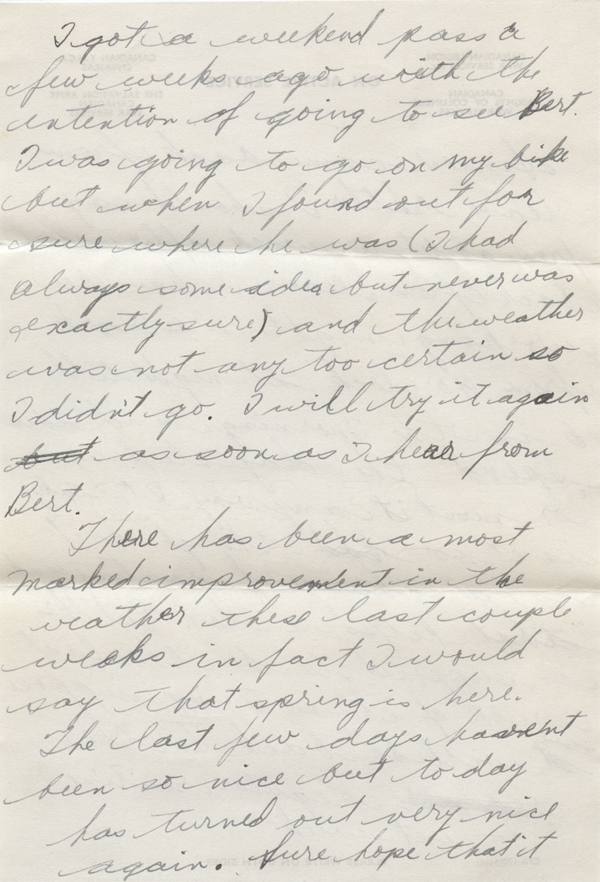 I got a weekend pass a
few weeks ago with the
intention of going to see Bert.
I was going to go on my bike
but when I found out for
sure where he was (I had
always some idea but never was
exactly sure) and the weather
was not any too certain so
I didn't go. I will try it again
but as soon as I hear from
Bert.
There has been a most
marked improvement in the
weather these last couple
weeks in fact I would
say that spring is here.
The last few days havent
been so nice but to day
has turned out very nice
again. Sure hope that it